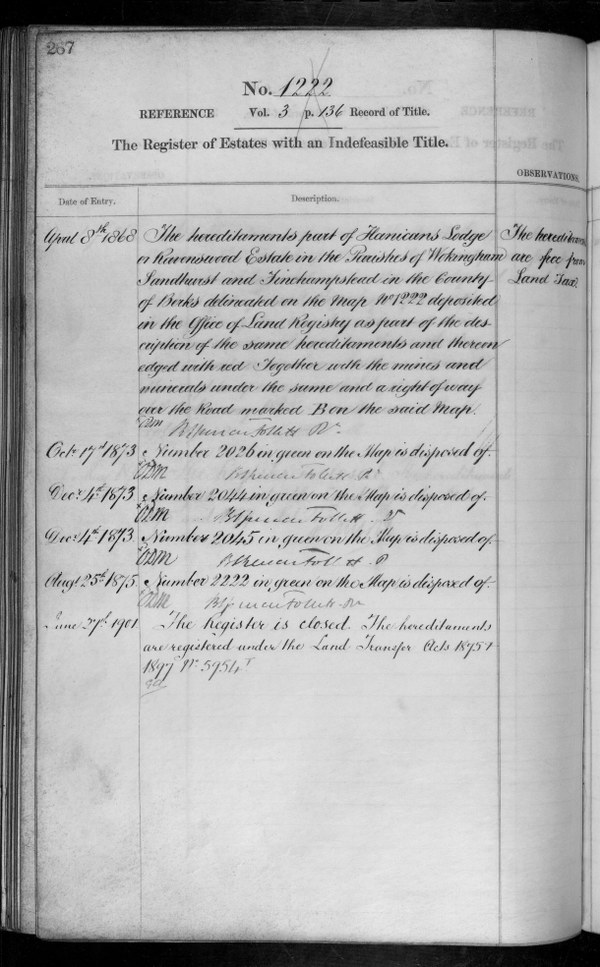 267
No. 1222
REFERENCE Vol. 3 p. 136 Record of Title.
The Register of Estates with an Indefeasible Title.
OBSERVATIONS.
Date of Entry.
Description.
April 8th 1868
The hereditaments part of Hanicans Lodge
or Ravenswood Estate in the Parishes of Wokingham
Sandhurst and Finchampstead in the County
of Berks delineated on the Map No 1222 deposited
in the Office of Land Registry as part of the des-
cription of the same hereditaments and thereon
edged with red Together with the mines and
minerals under the same and a right of way
over the Road marked B on the said Map.
The heredit
are free from
Land Tax.
Octr 17th 1873 Number 2026 in green on the Map is disposed of.
Decr 4th 1873 Number 2044 in green on the Map is disposed of.
Decr 4th 1873 Number 2045 in green on the Map is disposed of.
Augt 25th 1875 Number 2222 in green on the Map is disposed of.
June 27th 1901 The Register is closed. The hereditaments
are registered under the Land Transfer Acts 1875 &
1897 No 5954